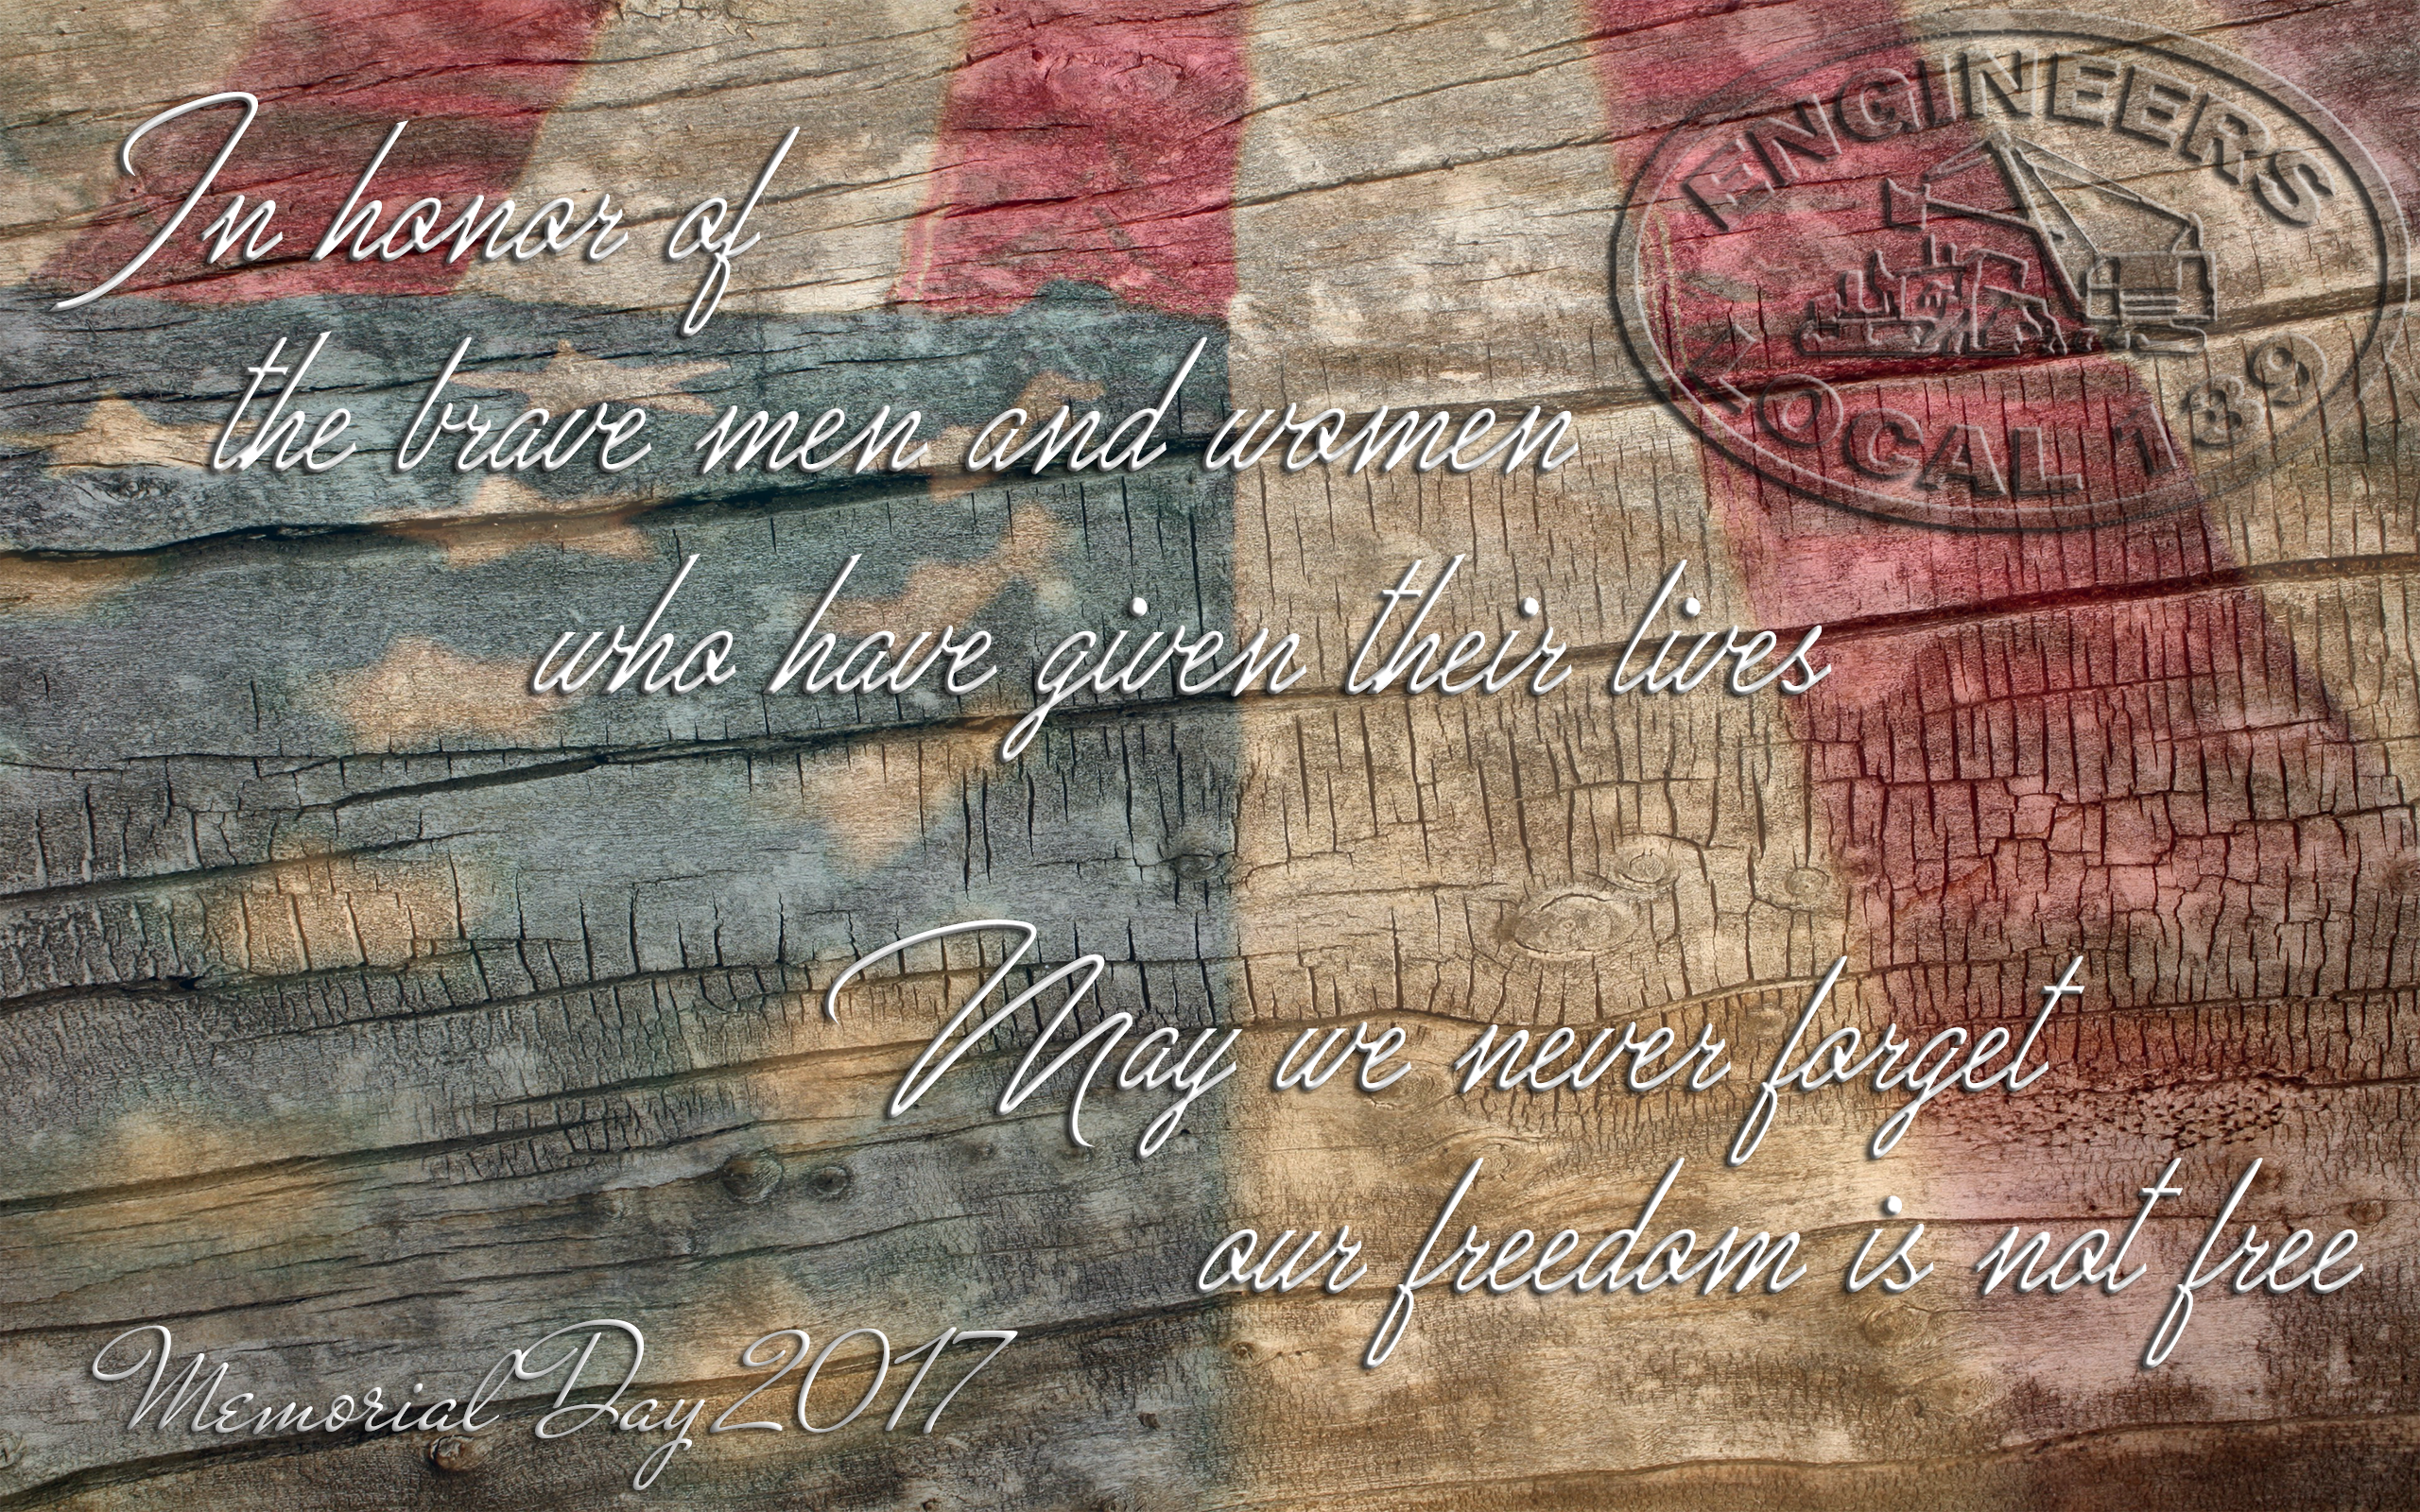 In honor of
the brave men and women
who have given their lives
May we never forget
our freedom is not free
Memorial Day 2017
ENGINEERS
LOCAL 139